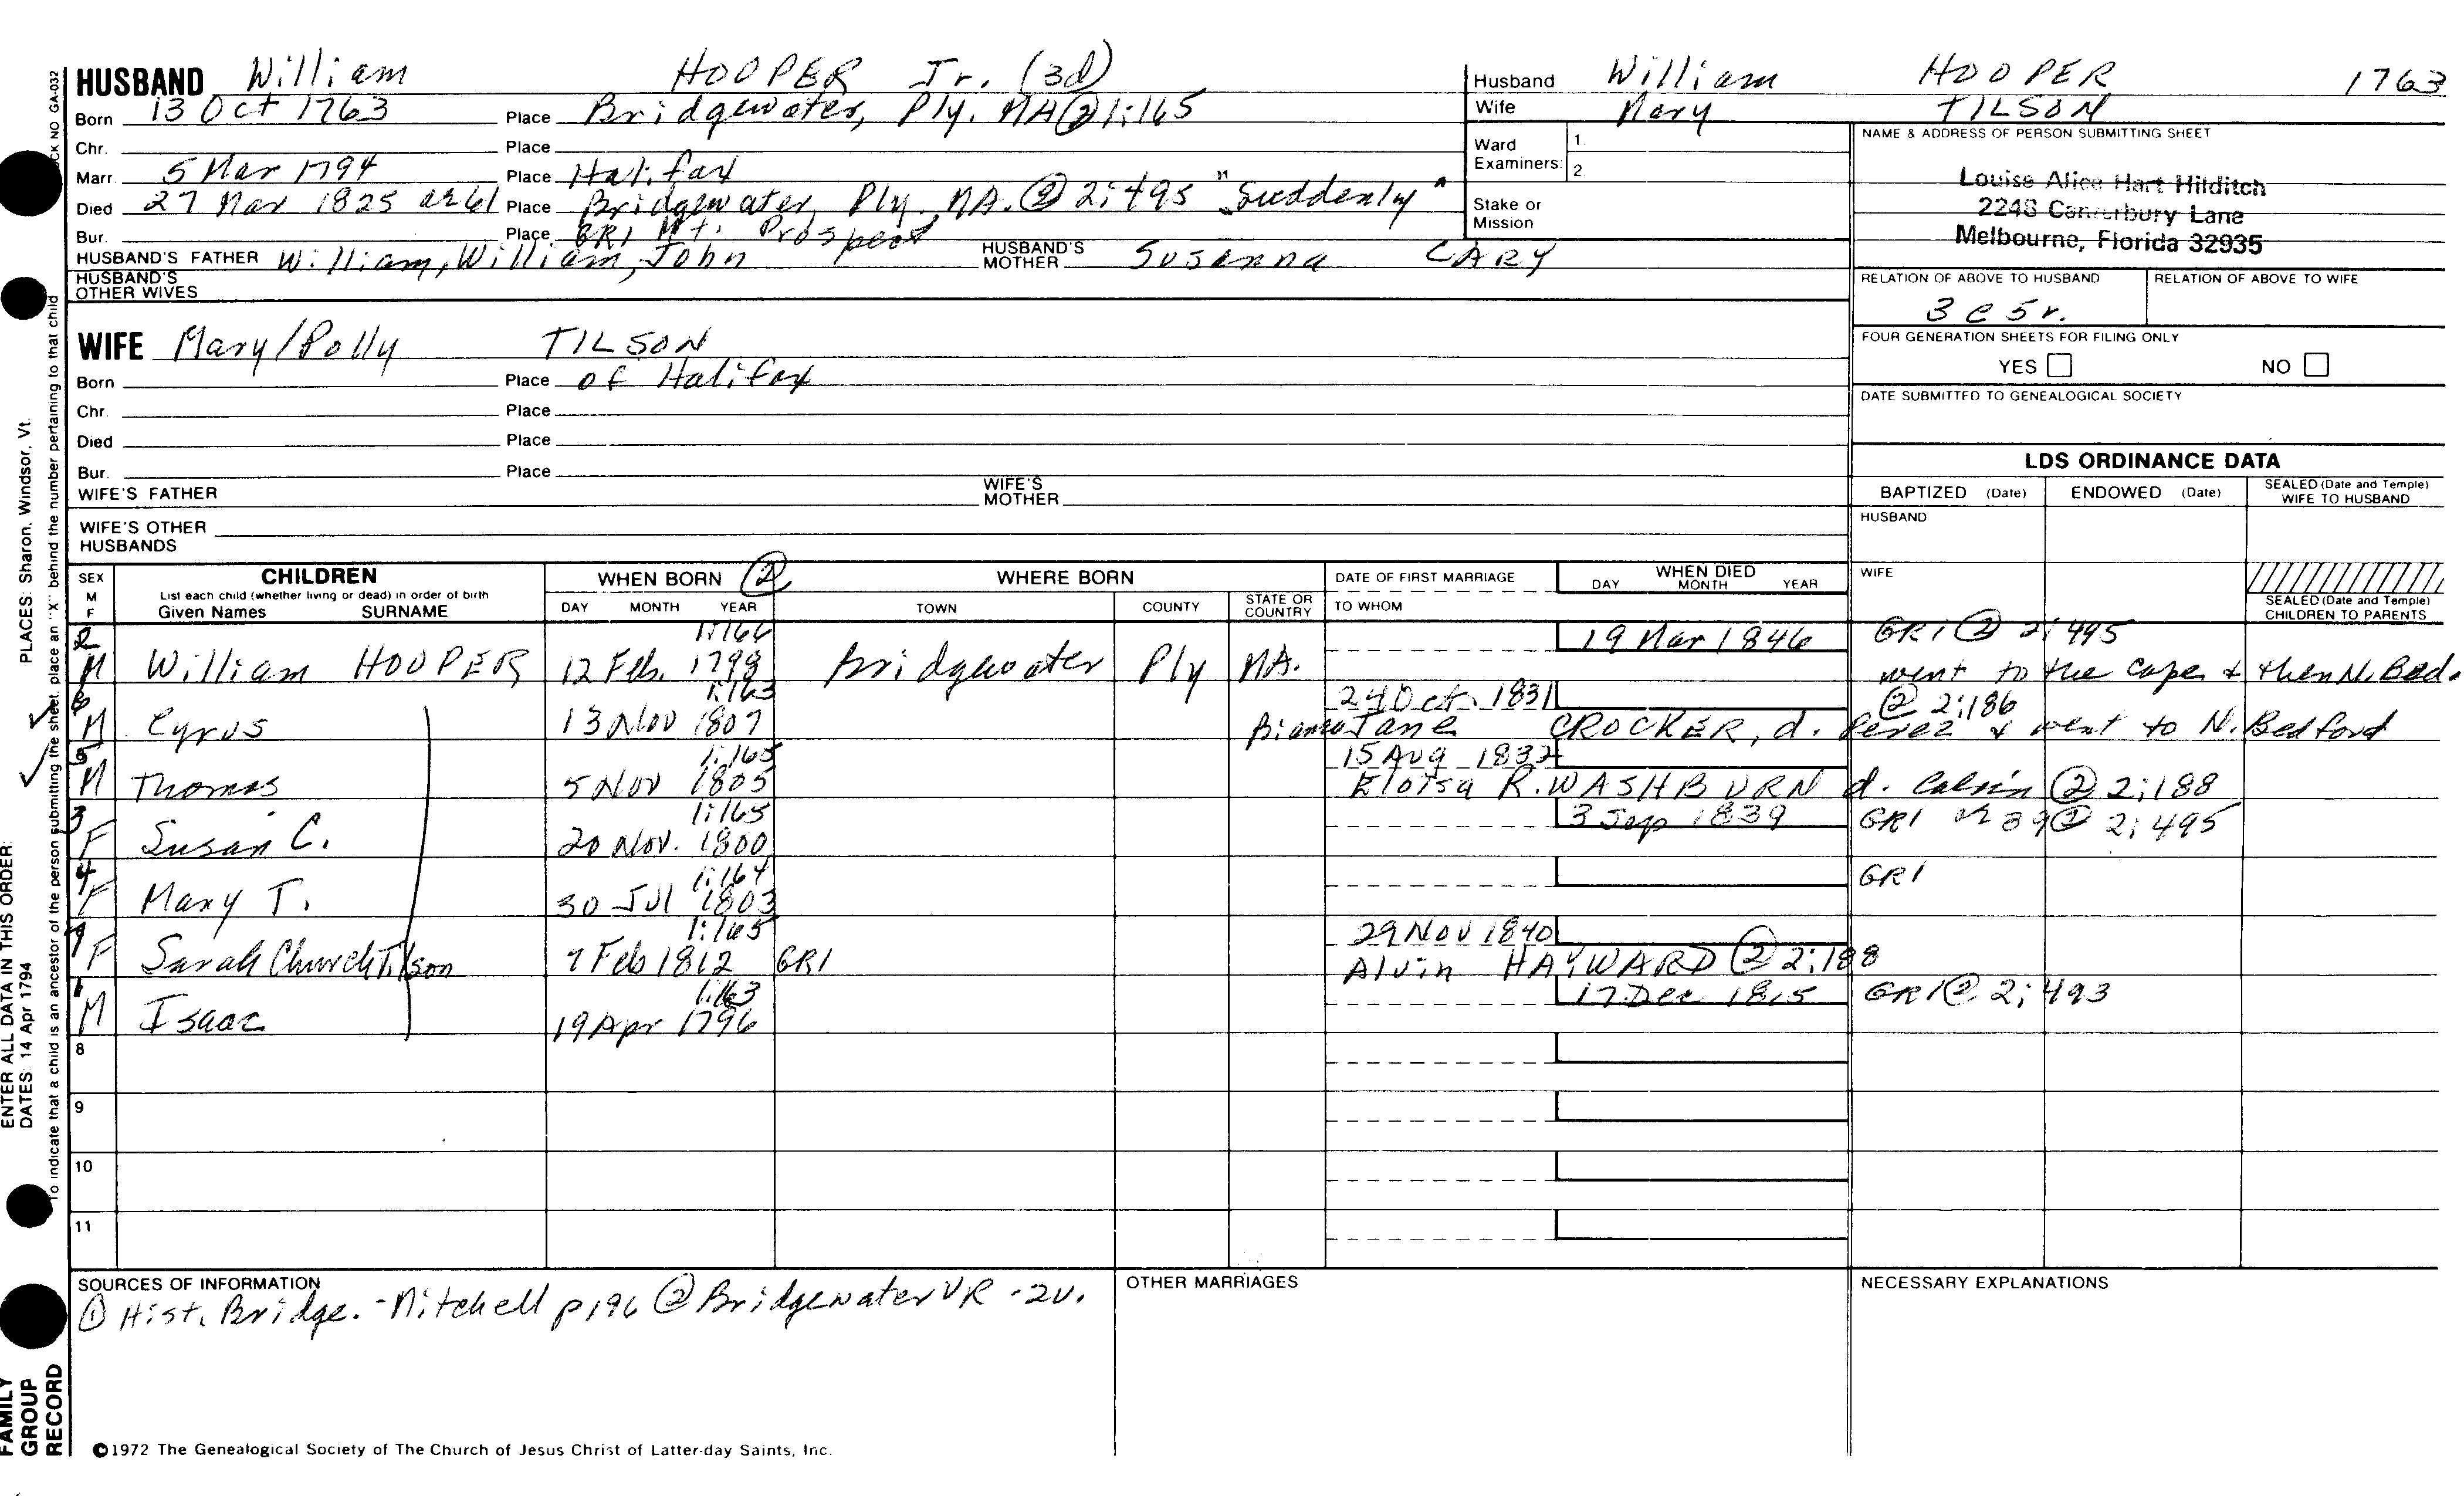 HUSBAND William HOOPER Jr. (3d)
Born 13 Oct 1763 Place Bridgewater, Ply. MA ② 1:165
Chr. Place
Marr. 5 Mar 1794 Place Halifax
Died 27 Mar 1825 ae 61 Place Bridgewater, Ply. MA. ② 2:495 "Suddenly"
Bur. Place GR1 Mt. Prospect
HUSBAND'S FATHER William, William, John HUSBAND'S MOTHER Susanna CARY
HUSBAND'S OTHER WIVES
WIFE Mary/Polly TILSON
Born Place of Halifax
Chr. Place
Died Place
Bur. Place
WIFE'S FATHER WIFE'S MOTHER
WIFE'S OTHER HUSBANDS
Husband William HOOPER 1763
Wife Mary TILSON
Ward Examiners: 1. 2.
Stake or Mission
NAME & ADDRESS OF PERSON SUBMITTING SHEET
Louise Alice Hart Hilditch
2248 Canterbury Lane
Melbourne, Florida 32935
RELATION OF ABOVE TO HUSBAND RELATION OF ABOVE TO WIFE
3 c 5 r.
FOUR GENERATION SHEETS FOR FILING ONLY
YES NO
DATE SUBMITTED TO GENEALOGICAL SOCIETY
LDS ORDINANCE DATA
BAPTIZED (Date) ENDOWED (Date) SEALED (Date and Temple) WIFE TO HUSBAND
HUSBAND
WIFE
SEALED (Date and Temple) CHILDREN TO PARENTS
SEX M F CHILDREN WHEN BORN ② WHERE BORN DATE OF FIRST MARRIAGE WHEN DIED DAY MONTH YEAR
List each child (whether living or dead) in order of birth
Given Names SURNAME DAY MONTH YEAR TOWN COUNTY STATE OR COUNTRY TO WHOM
2 1:166 19 Mar 1846 GR1 ② 2:495
M William HOOPER 12 Feb. 1798 Bridgewater Ply MA. went to the cape & then N. Bed.
6 1:163 24 Oct. 1831 ② 2:186
M Cyrus 13 Nov 1807 Jane CROCKER, d. Perez & went to N. Bedford
5 1:165 15 Aug 1832
M Thomas 5 Nov 1805 Eloisa R. WASHBURN d. Calvin ② 2:188
3 1:165 3 Sep 1839 GR1 39 ② 2:495
F Susan C. 20 Nov. 1800
4 1:164 GR1
F Mary T. 30 Jul 1803
1:165 29 Nov 1840
F Sarah Church Tilson 7 Feb 1812 GR1 Alvin HAYWARD ② 2:188
1 1:163 17 Dec 1815 GR1 ② 2:493
M Isaac 19 Apr 1796
8
9
10
11
SOURCES OF INFORMATION
① Hist. Bridge. - Mitchell p 196 ② Bridgewater VR - 2v.
OTHER MARRIAGES
NECESSARY EXPLANATIONS
©1972 The Genealogical Society of The Church of Jesus Christ of Latter-day Saints, Inc.
FAMILY GROUP RECORD
ENTER ALL DATA IN THIS ORDER:
DATES: 14 Apr 1794
PLACES: Sharon, Windsor, Vt.
To indicate that a child is an ancestor of the person submitting the sheet, place an "X" behind the number pertaining to that child
CK NO GA-032